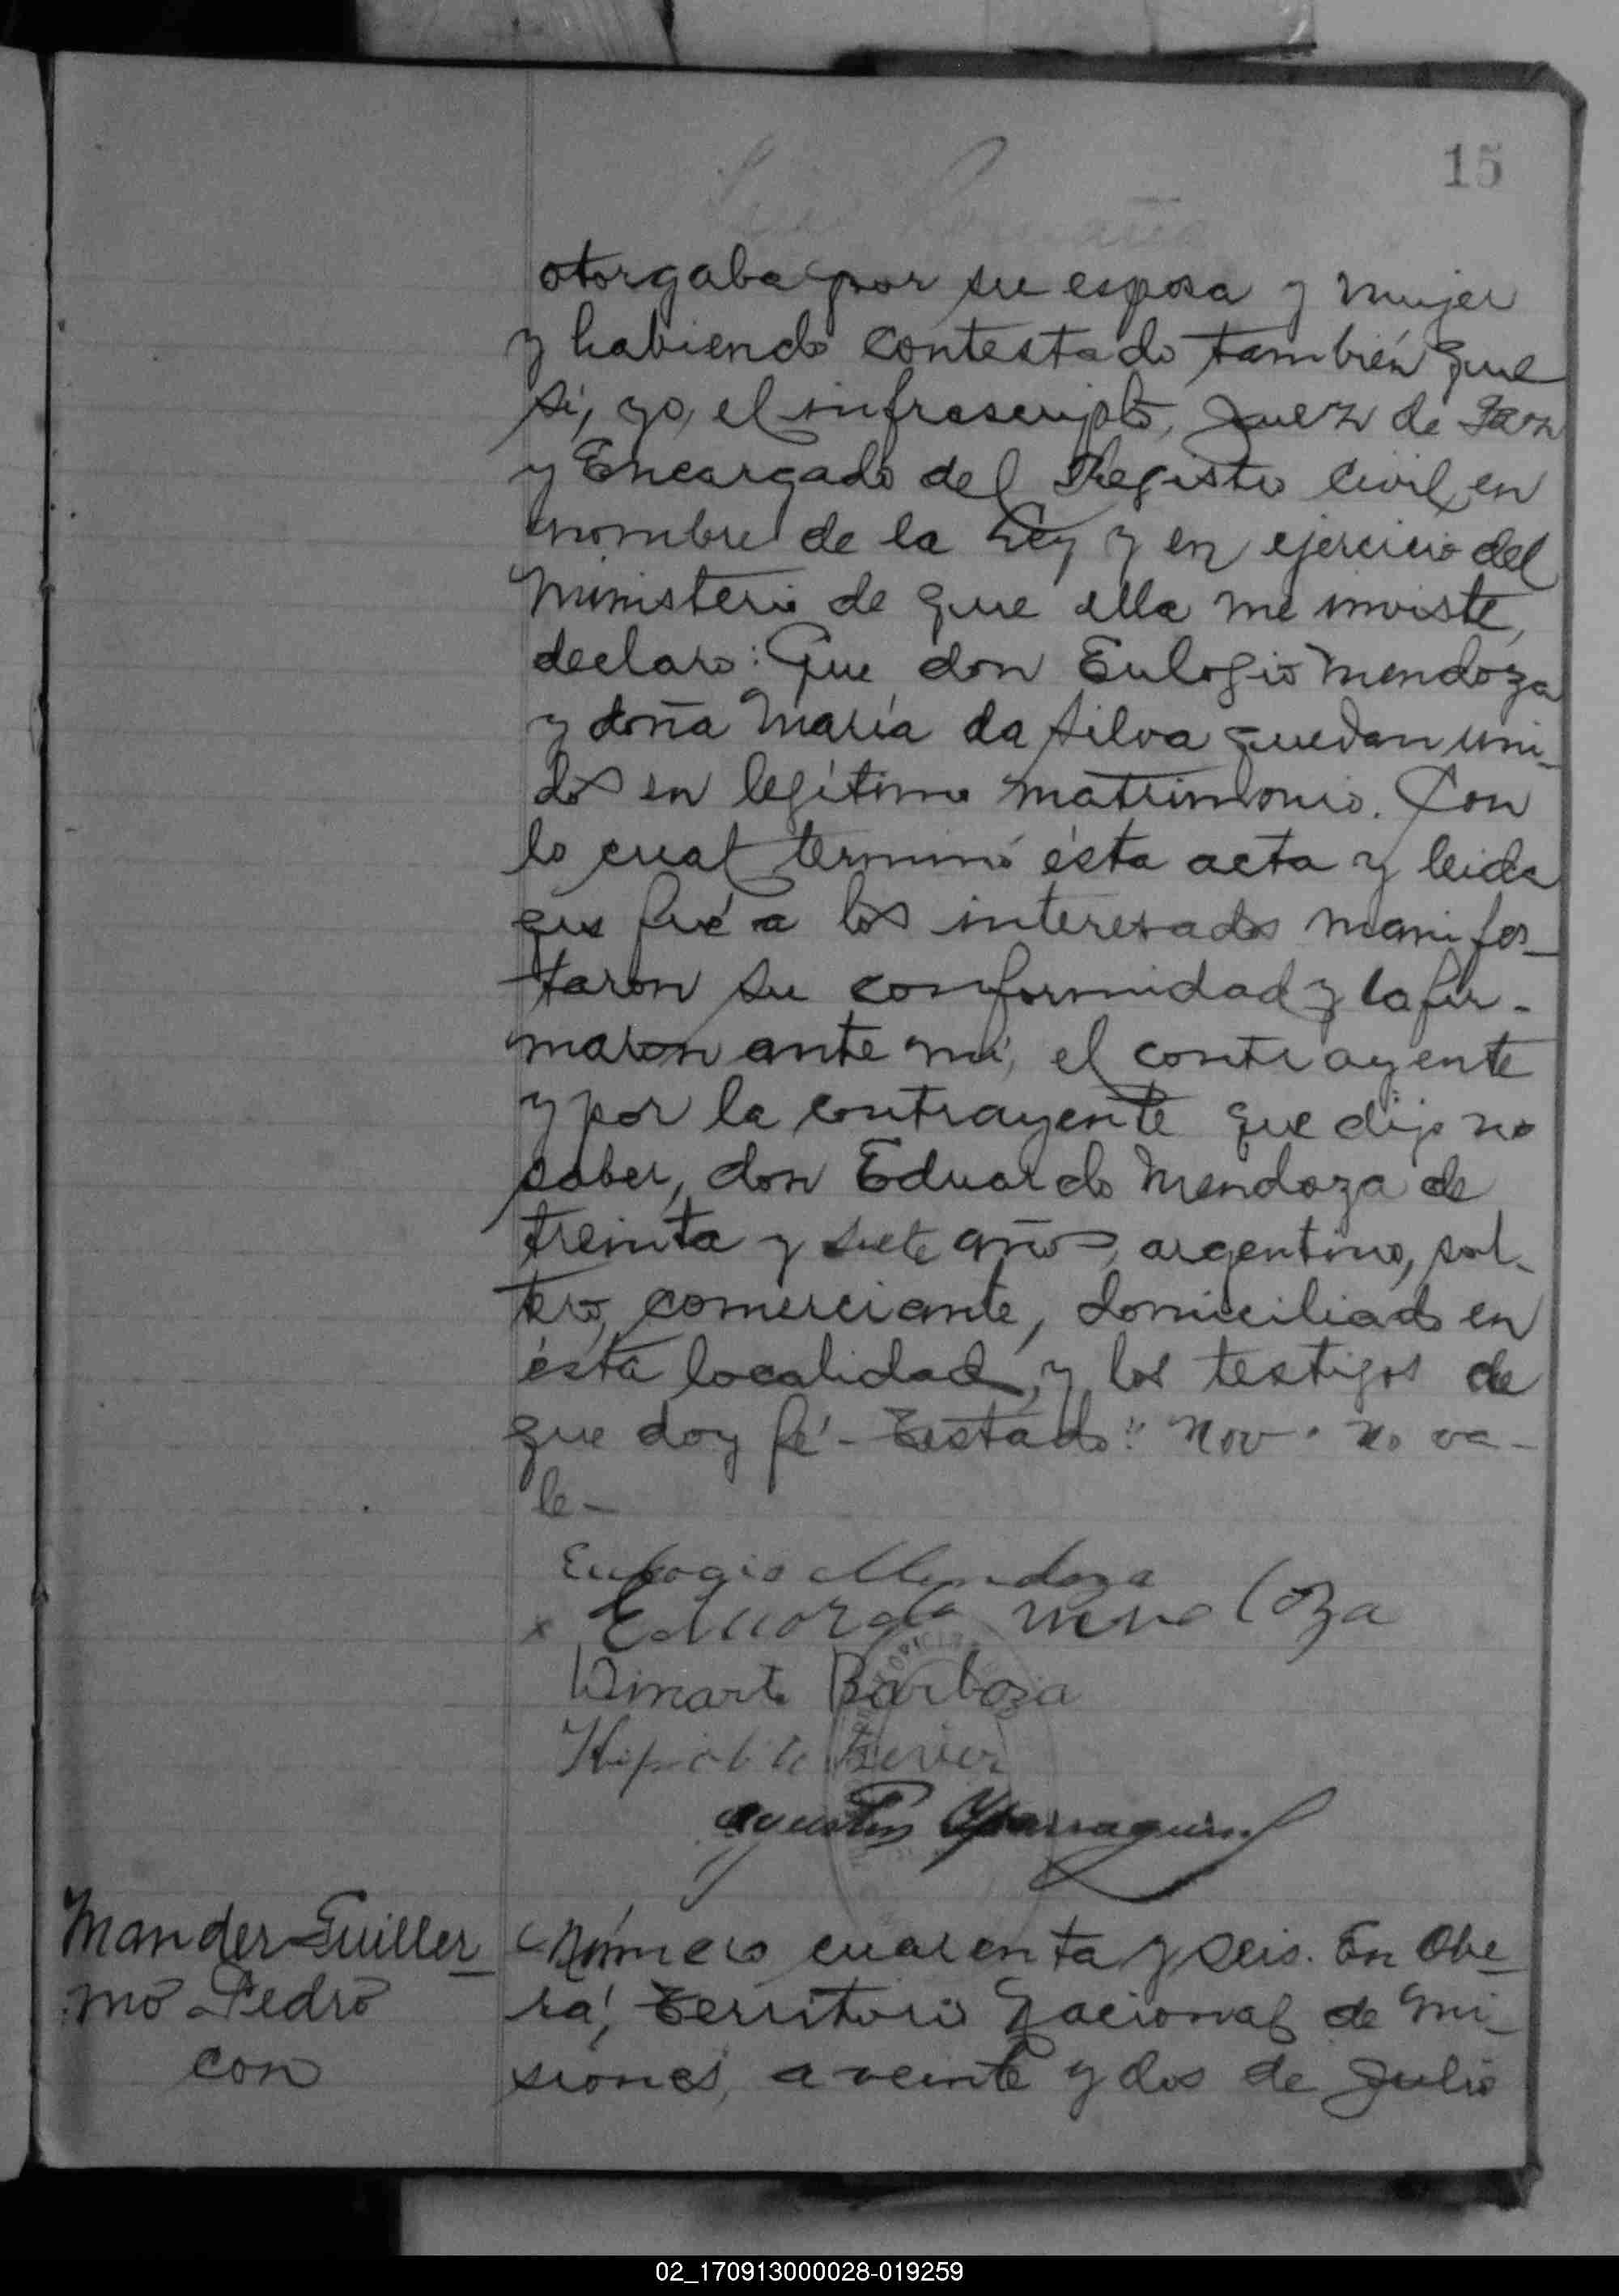 15
otorgaba por su esposa y mujer
y habiendo contestado también que
si, yo, el infrascripto, Juez de Paz
y Encargado del Registro Civil, en
nombre de la Ley y en ejercicio del
Ministerio de que ella me inviste,
declaro: Que don Eulogio Mendoza
y doña María da Silva quedan uni-
dos en legítimo matrimonio. Con
lo cual terminó ésta acta y leida
que fué a los interesados manifes-
taron su conformidad y la fir-
maron ante mi, el contrayente
y por la contrayente que dijo no
saber, don Eduardo Mendoza de
treinta y siete años, argentino, sol-
tero, comerciante, domiciliado en
ésta localidad, y los testigos de
que doy fé - Testado: "Nov" No va-
le -
Eulogio Mendoza
x Eduardo Mendoza
Barboza
Agustin
Mander Guiller-
mo Pedro
con
Número cuarenta y seis. En Obe-
rá, Territorio Nacional de Mi-
siones, a veinte y dos de Julio
02_170913000028-019259